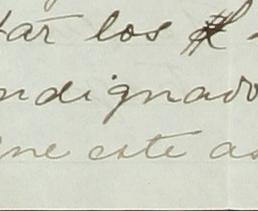 tar los
ndignado
ne este as